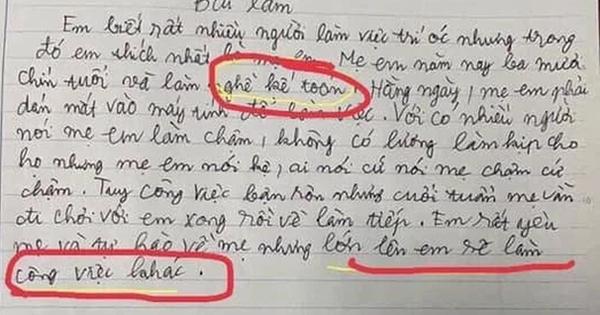 Bài làm
Em biết rất nhiều người làm việc trí óc nhưng trong
đó em thích nhất là mẹ em. Mẹ em năm nay ba mươi
chín tuổi và làm nghề kế toán. Hằng ngày, mẹ em phải
dán mắt vào máy tính để làm việc. Với có nhiều người
nói mẹ em làm chậm, không có lương làm kịp cho
họ nhưng mẹ em nói kệ, ai nói cứ nói mẹ chậm cứ
chậm. Tuy công việc bận rộn nhưng cuối tuần mẹ vẫn
đi chơi với em xong rồi về làm tiếp. Em rất yêu
mẹ và tự hào về mẹ nhưng lớn lên em sẽ làm
công việc khác.